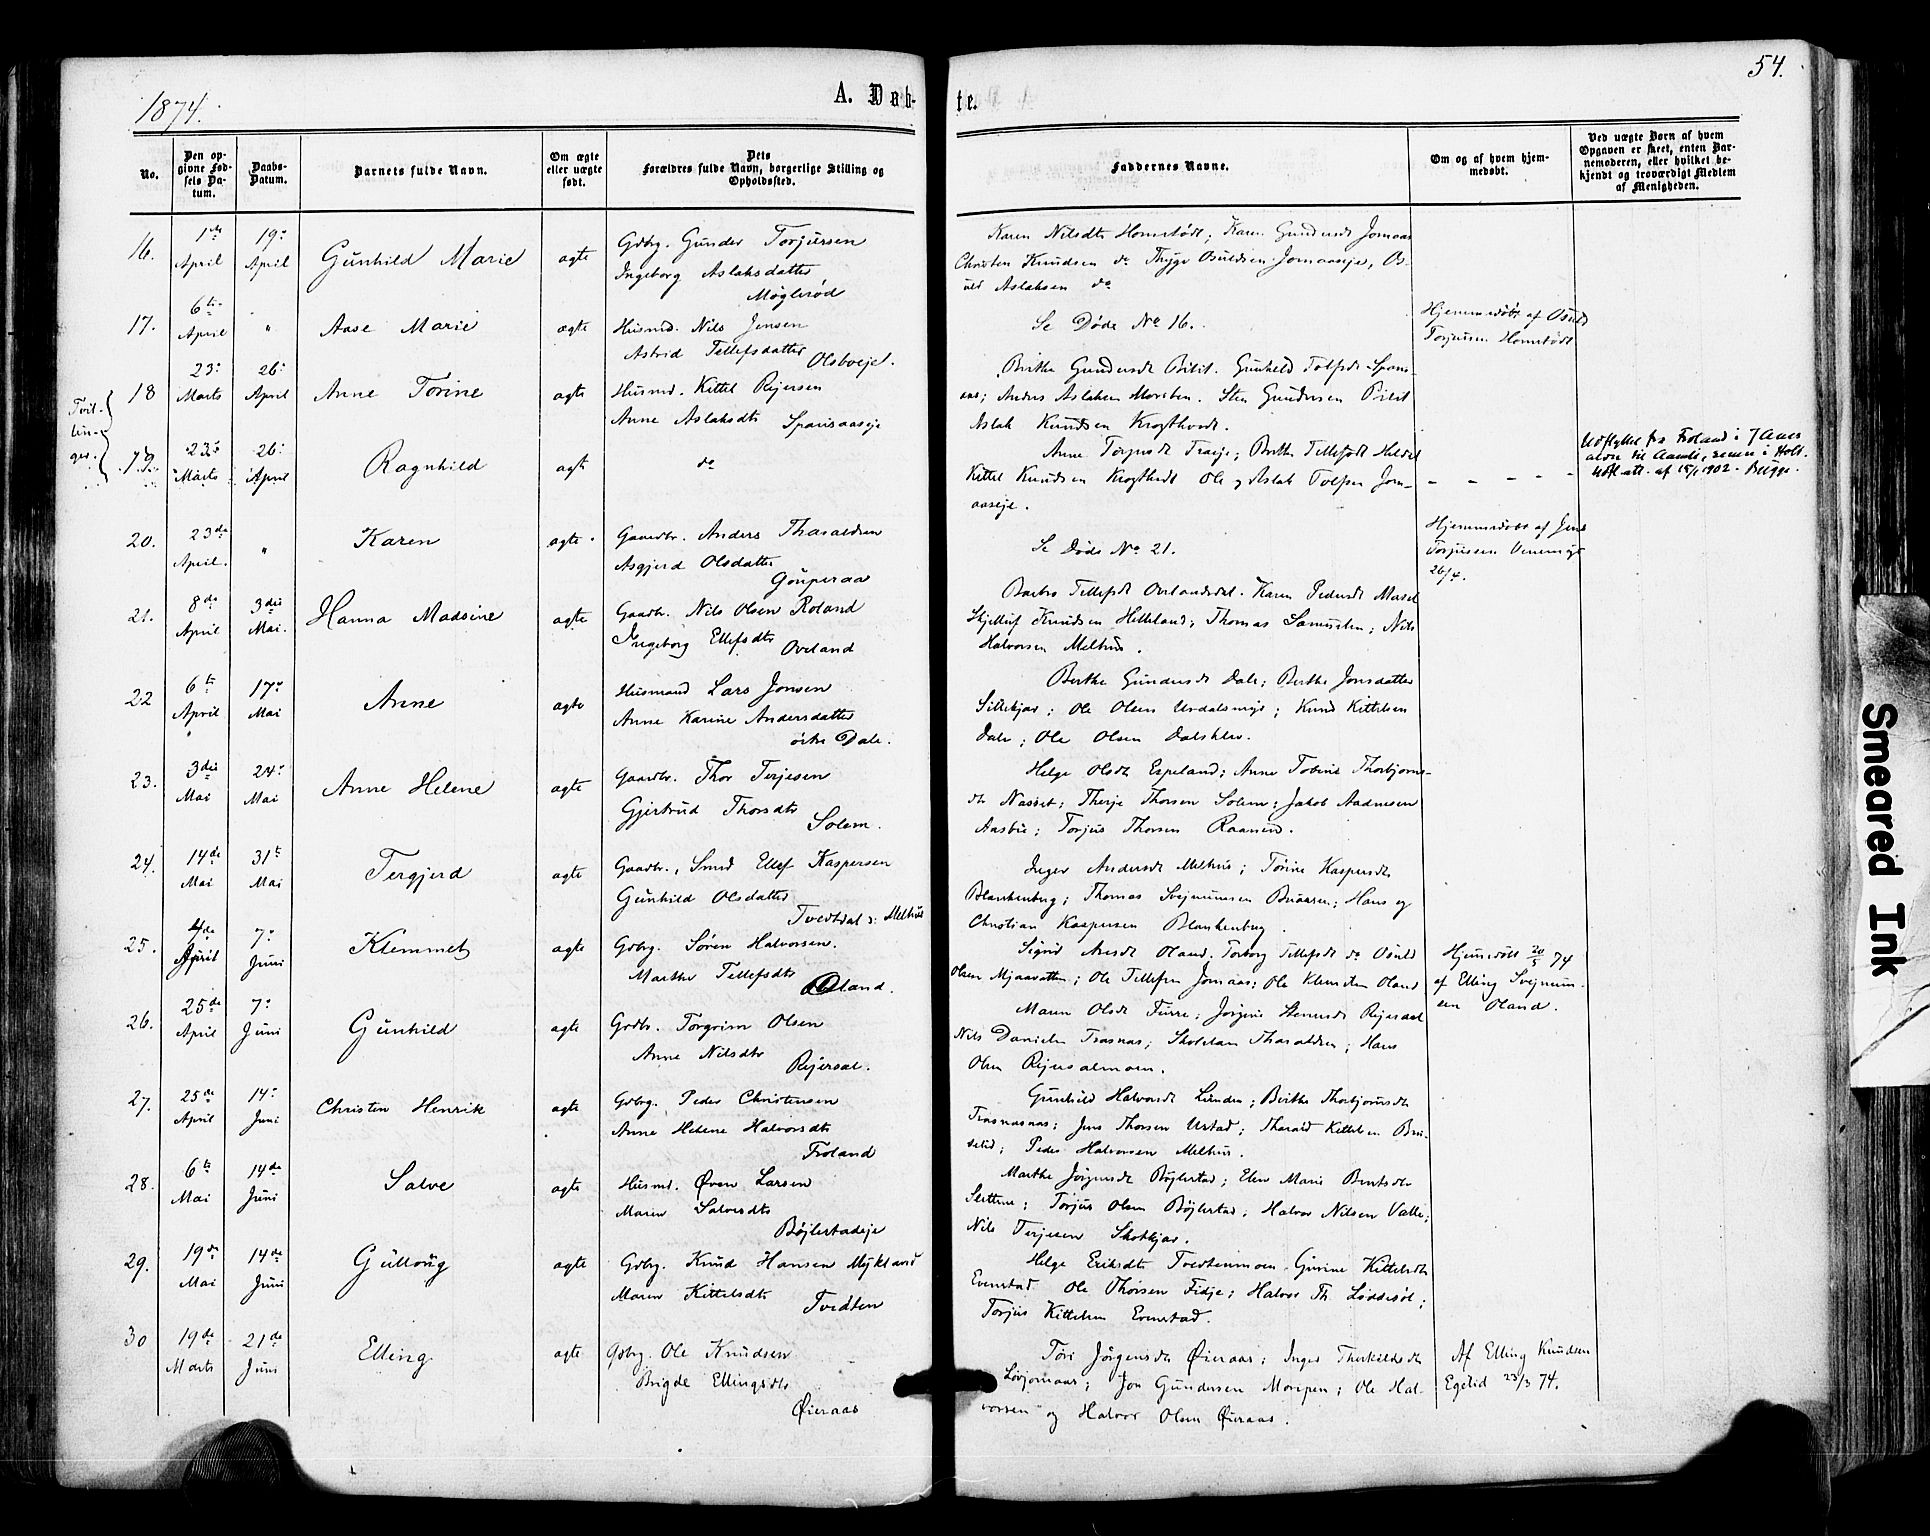 1874.
A. Døb-
te.
54.
No.
Den op-
givne Fød-
sels Da-
tum.
Daabs-
Datum.
Barnets fulde Navn.
Om ægte
eller uægte
født.
Dets
Forældres fulde Navn, borgerlige Stilling og
Opholdssted.
Faddernes Navne.
Om og af hvem hjem-
medøbt.
Ved uægte Børn af hvem
Opgaven er skeet, enten Bar-
nemoderen, eller hvilket be-
kjendt og troværdigt Medlem
af Menigheden.
16. 1de April 19: April Gunhild Marie ægte
Gdbrg. Gunder Torjussen
Ingeborg Aslaksdatter
Møglerød
Karen Nilsdtr Homstødt; Karen Gundersdt Jomaas
Christen Knudsen do Thyge Osuldsen Jomaaseje, Os-
uld Aslaksen do
17. 6te April " Aase Marie ægte
Husmd. Nils Jensen
Astrid Tellefsdatter
Olsbueje.
Se Døde No 16.
Hjemmedøbt af Osuld
Torjussen Homstødt
Tvil-
lin-
ger.
18 23: Marts 26: April Anne Torine ægte
Husmd. Kittel Rejersen
Anne Aslaksdtr Spansaaseje
Berthe Gundersdt Bilit. Gunhild Tolfsdt Spans-
aas; Anders Aslaksen Mersten. Sten Gundersen Bilit
Aslak Knudsen Krogthvedt.
19. 23: Marts 26: April Ragnhild ægte
do
Anne Torjusdt Traeje; Berthe Tellefsdt Heldal
Kittel Knudsen Krogthvedt Ole og Aslak Tolfsen Jom-
aaseje.
Udflyttet fra Froland i 7 Aars
alder til Aamli, senere i Holt.
Udfl. att. af 15/1 1902. Begge.
20. 23de April. " Karen ægte.
Gaardbr. Anders Tharaldsen
Asgjerd Olsdatter
Gouperaa
Se Døde No 21.
Hjemmedøbt af Jens
Torjussen Venemyr
26/4.
21. 8de April 3die Mai. Hanna Madsine ægte
Gaardb. Nils Olsen Roland
Ingeborg Ellefsdtr
Oveland
Barbro Tellefsdt Ovelandsdal. Karen Pedersdt Messel
Skjelluf Knudsen Helleland; Thomas Samuelsen; Nils
Halvorsen Melhus.
22 6te April 17: Mai Anne ægte
Husmand Lars Jonsen
Anne Karine Andersdatter
østre Dale.
Berthe Gundersdt Dale; Berthe Jonsdatter
Sillekjær; Ole Olsen Urdalsmyr; Knud Kittelsen
Dale; Ole Olsen Dalsklev.
23. 3die Mai 24: Mai Anne Helene ægte
Gaardbr. Thor Terjesen
Gjertrud Thorsdtr
Solem.
Helge Olsdt Espeland; Anne Tobine Thorbjørns-
dt Næsset; Therje Thorsen Solem; Jakob Aadnesen
Aasbie; Torjus Thorsen Raanend.
24. 14de Mai 31te Mai Tergjerd ægte
Gaardbr., Smed Ellef Kaspersen
Gunhild Olsdatter
Tvedtdal s: Melhus
Inger Andersdt Melhus; Tørine Kaspersdt
Blankenberg; Thomas Svejnumsen Buaasen; Hans og
Christian Kaspersen Blankenberg.
25. April 7: Juni Klemmet ægte
Gdbrg. Søren Halvorsen.
Marthe Tellefsdtr
Oland.
Sigrid Aresdt Oland. Torborg Tellefsdt do Osuld
Olsen Mjaavatten; Ole Tellefsen Jomaas; Ole Klemetsen Oland
Hjemmedøbt 20/5 74
af Elling Svejnum-
sen Oland.
26. 25de April 7: Juni Gunhild ægte
Grdbr. Torgrim Olsen
Anne Nilsdtr
Rejersøl.
Maren Olsdt Furre; Jørgine Stensdt Rejersøl
Nils Danielsen Trøsnæs; Tharaldsen; Hans
Olsen Rejersølmoen.
27. 25de April 14: Juni Christen Henrik ægte
Gdbrg. Peder Christensen
Anne Helene Halvorsdtr
Froland
Gunhild Halvorsdt Lunden; Berthe Thorbjørnsdt
Trøsnæsnæs; Jens Thorsen Ustad; Tharald Kittelsen Bru-
selid; Peder Halvorsen Melhus.
28. 6te Mai 14de Juni Salve ægte
Husmd. Øven Larsen
Maren Salvesdtr
Bøjlestadeje
Marthe Jørgensdt Bøjlestad; Elen Marie Berntsdtr
Torjus Olsen Bøjlestad; Halvor Nilsen Valle;
Nils Terjesen Skotkjær.
29. 19de Mai 14de Juni Gulloug ægte
Gdbrg. Knud Hansen Mykland
Maren Kittelsdtr
Tvedten
Helge Eriksdtr Tvedtenmoen. Gurine Kittelsdt
Evenstad. Ole Thorsen Fidje; Halvor Th. Løddesøl;
Torjus Kittelsen Evenstad.
30 19de Marts 21de Juni Elling ægte
Gdbrg. Ole Knudsen
Brigde Ellingsdtr
Øieraas
Tøri Jørgensdt Øieraas; Inger Therkildsdt
Løvjomaas; Jon Gundersen Moripen; Ole Hal-
vorsen og Halvor Olsen Øieraas.
Af Elling Knudsen
Egelid 23/3 74.
Smeared Ink